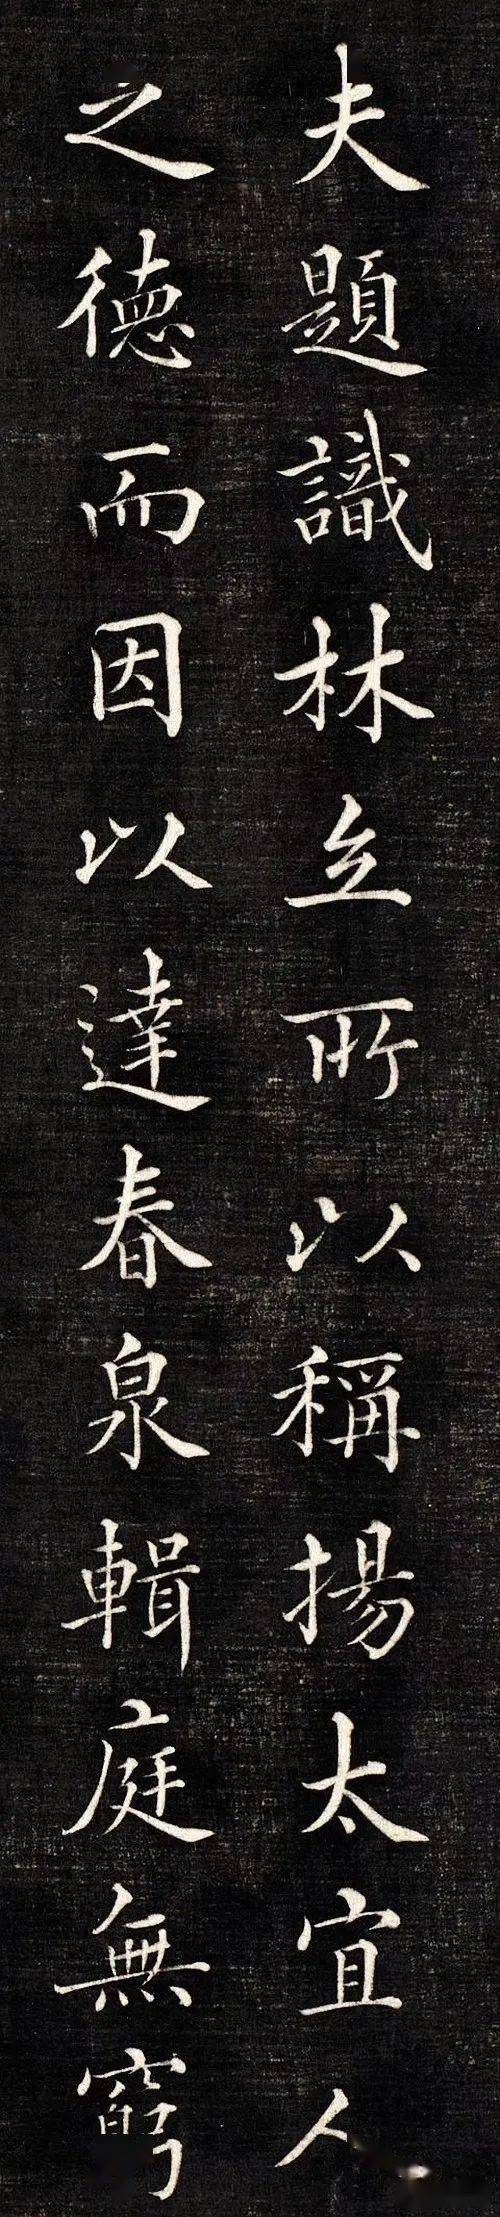 夫題識林立所以稱揚太宜人
之德而因以達春泉輯庭無窮